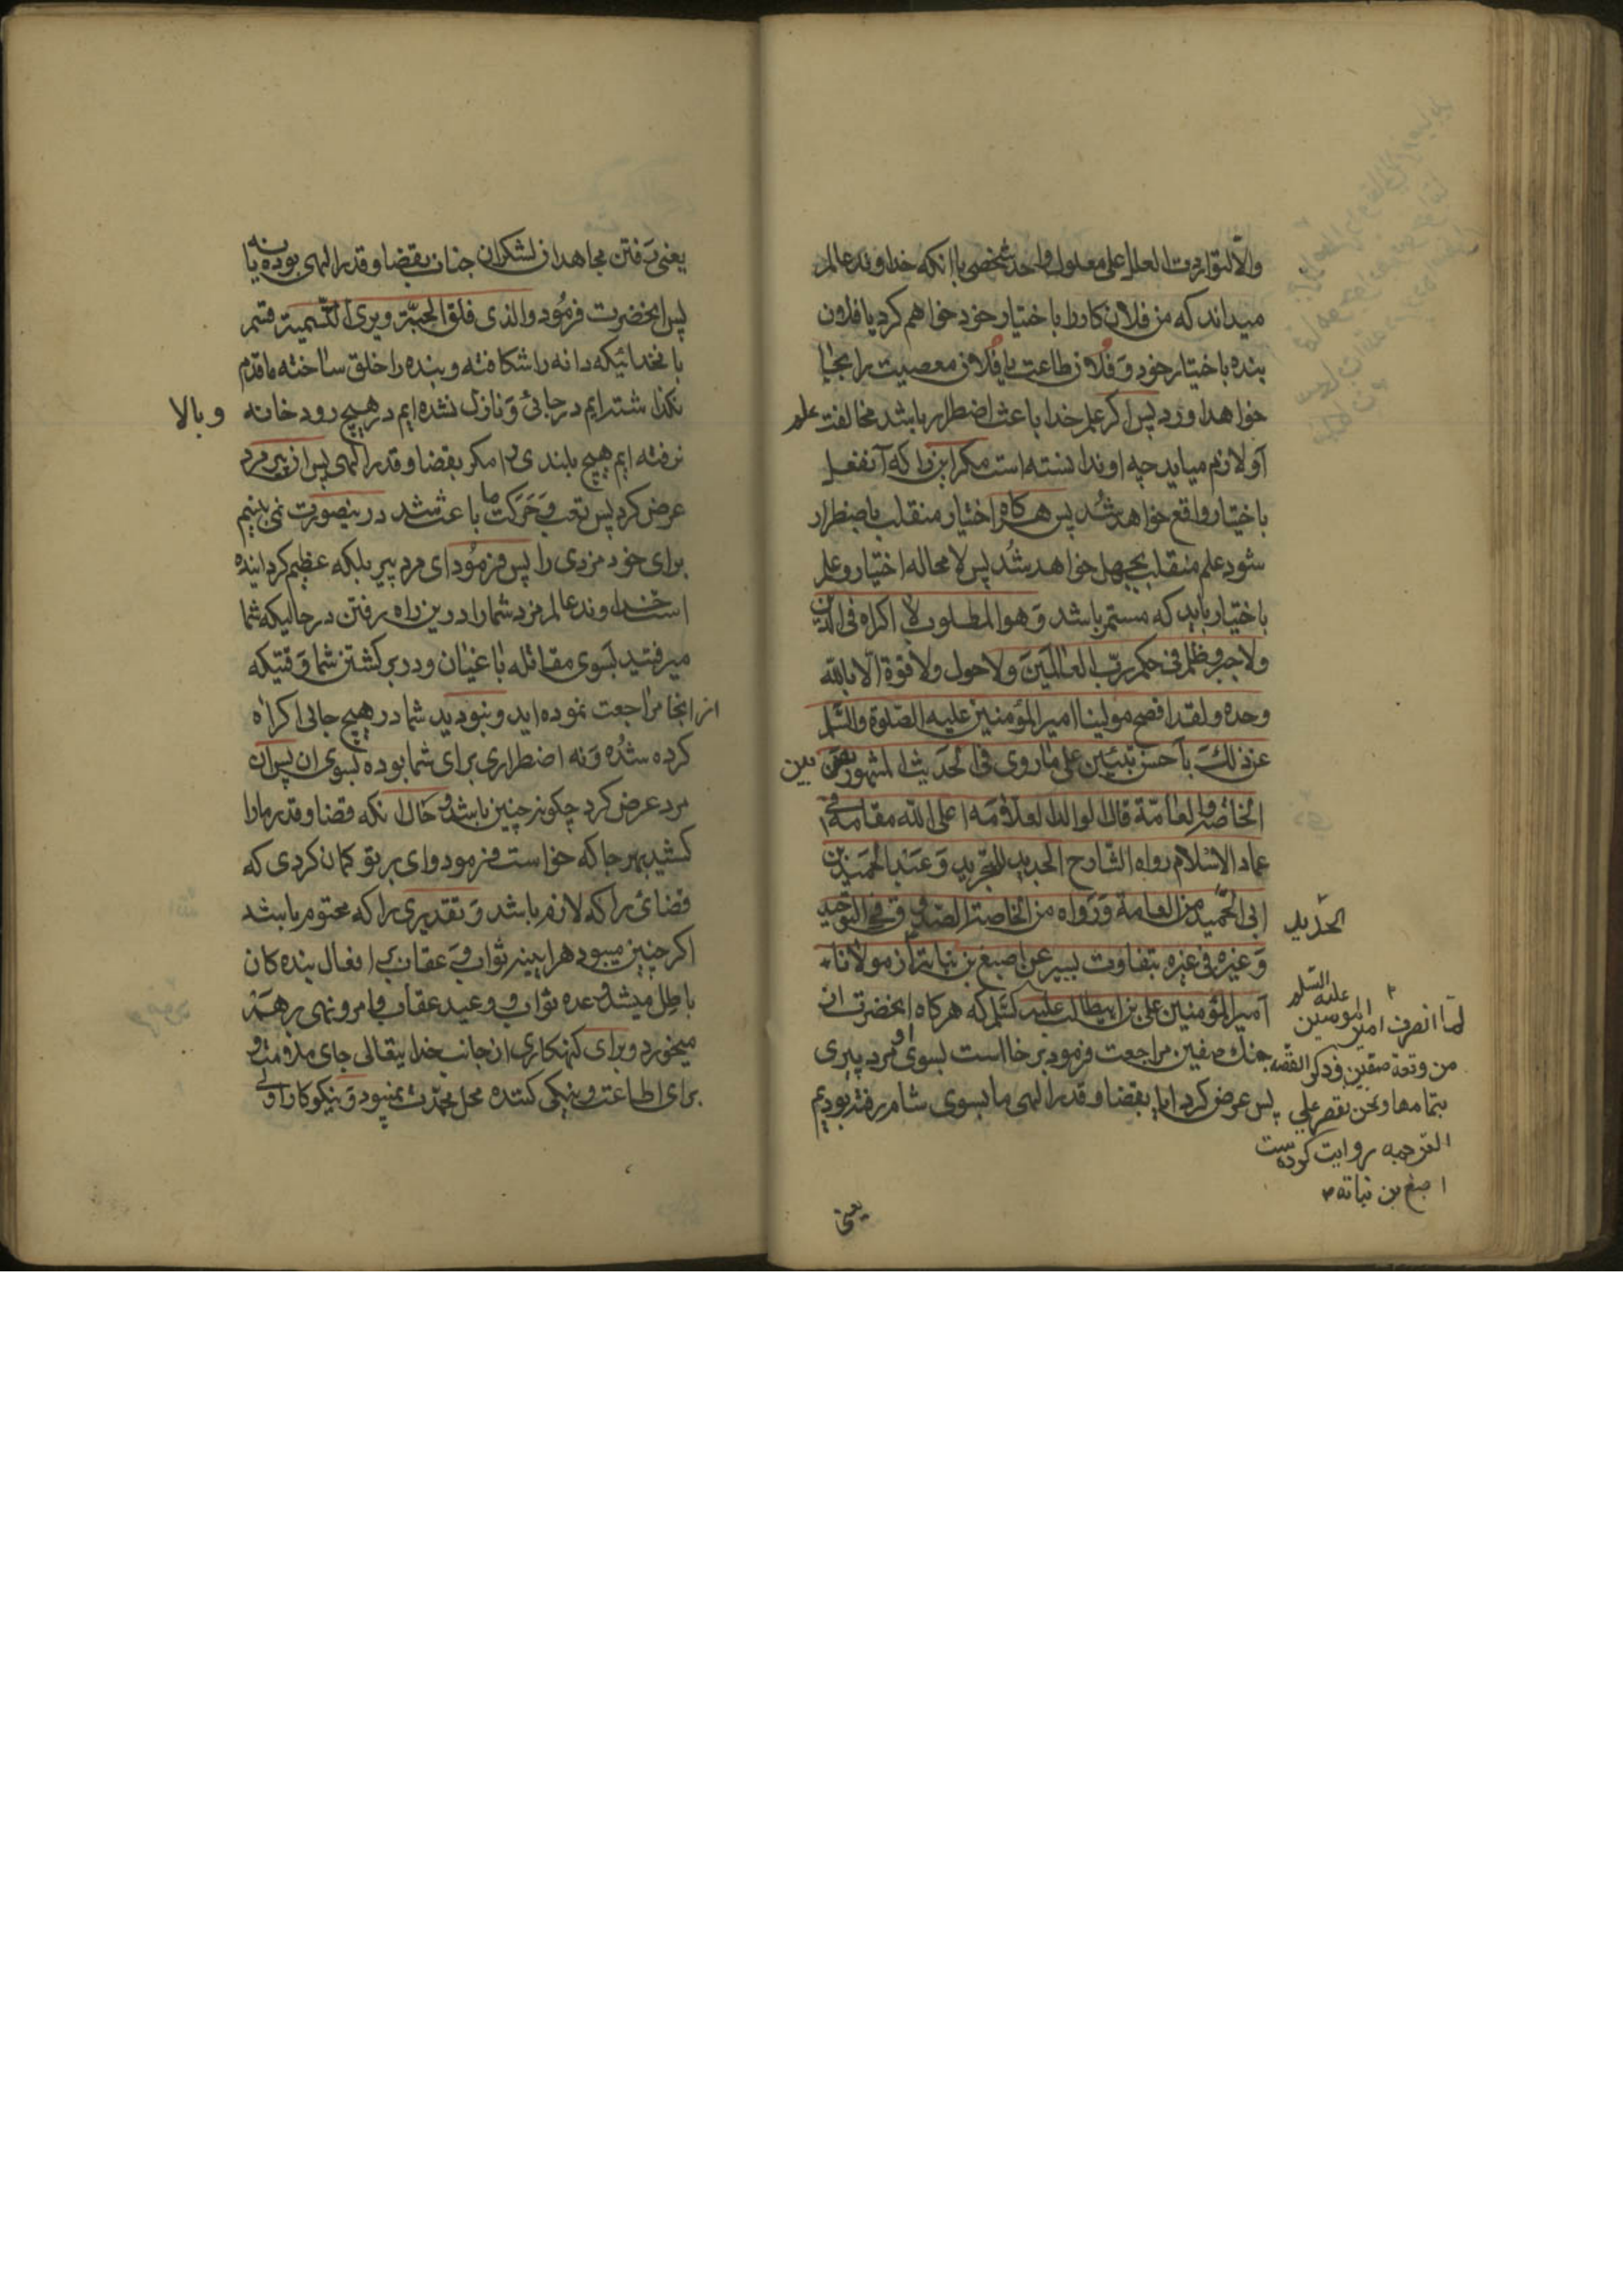 والّا لتواردت العلل علی معلول واحد شخصی باانکه خداوند عالم
میداند که من فلان کار را باختیار خود خواهم کرد یا فلان
بنده باختیار خود و فلان طاعت یا فلان معصیت را بجا
خواهد اورد پس اگر علم خدا باعث اضطرار باشد مخالفت علم
او لازم میاید چه او ندانسته است مکر این را که آنفعل
باختیار واقع خواهد شد پس هرکاه اختیار منقلب باضطرار
شود علم منقلب بجهل خواهد شد پس لا محاله اختیار و علم
باختیار باید که مستمر باشد و هو المطلوب لا اکراه فی الدین
ولا جبر و ظلم فی حکم رب العالمین ولا حول ولا قوة الّا بالله
وحده ولقد افصح مولینا امیر المؤمنین علیه الصلوة والسلم
عن ذلک باحسن تبیین علی ما روی فی الحدیث المشهور بین
الخاصة والعامّة قال الوالد العلامه اعلی الله مقامه فی
عماد الاسلام رواه الشارح الجدید للتجرید و عبد الحمید بن
ابی الحدید من العامة و رواه من الخاصة الصدوق فی التوحید
الحدید
و غیره فی غیره بتفاوت یسیر عن اصبغ بن نباته از مولانا
امیر المؤمنین علی بن ابیطالب علیه السلم که هرکاه انحضرت از
جنک صفین مراجعت فرمود برخاست بسوی او مرد پیری
پس عرض کرد ایا بقضا و قدر الهی ما بسوی شام رفته بودیم
لما انصرف امیر المومنین علیه السلم
من وقعة صفین و ذکر القصه
بتمامها و نحن نقصر علی
الترجمه روایت کرده است
اصبغ بن نباته
یعنی
یعنی رفتن مجاهدان لشکران جنان بقضا و قدر الهی بوده یا نه
پس انحضرت فرمود والذی فلق الحبّة و بری النسمة قسم
بانخدائیکه دانه را شکافته و بنده را خلق ساخته ما قدم
نکذاشته ایم در جائی و نازل نشده ایم در هیچ رود خانه و بالا
نرفته ایم هیچ بلندی را مکر بقضا و قدر الهی پس از پیر مرد
عرض کرد پس تعب و حرکت ما باعث شد درینصورت نمی بینیم
برای خود مزدی را پس فرمود ای مرد پیر بلکه عظیم کردانیده
است خداوند عالم مزد شما را درین راه رفتن در حالیکه شما
میرفتید بسوی مقاتله باغیان و در برکشتن شما وقتیکه
از انجا مراجعت نموده اید و نبودید شما در هیچ جائی اکراه
کرده شده و نه اضطراری برای شما بوده بسوی ان پس ان
مرد عرض کرد چکونه چنین باشد و حال انکه قضا و قدر ما را
کشید بهر جا که خواست فرمود وای بر تو کمان کردی که
قضائی را که لازم باشد و تقدیری را که محتوم باشد
اکر چنین میبود هراینه ثواب و عقاب بر افعال بنده کان
باطل میشد و وعده ثواب و وعید عقاب و امر و نهی برهم
میخورد و برای کنهکاری از جانب خدایتعالی جای مذمت و
برای اطاعت و نیکی کننده محل محمدت نمیبود و نیکوکار اولی